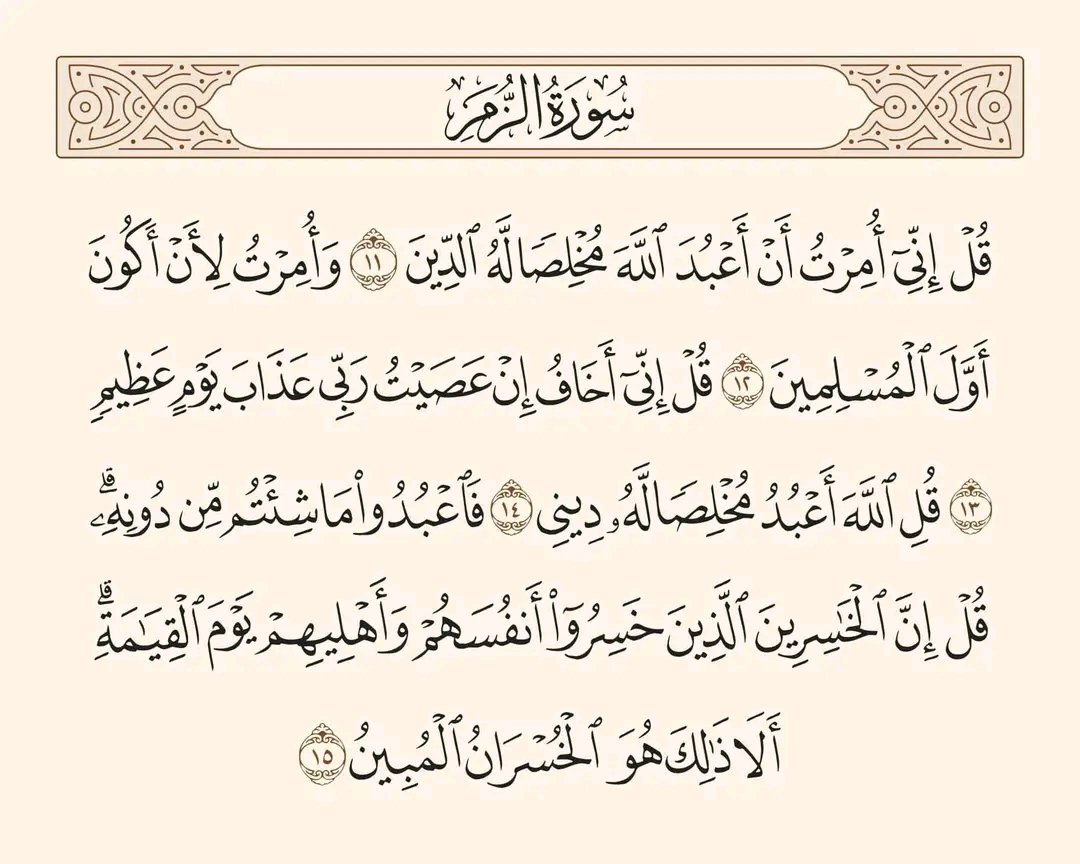 سُورَةُ الزُّمَرِ
قُلْ إِنِّىٓ أُمِرْتُ أَنْ أَعْبُدَ ٱللَّهَ مُخْلِصًا لَّهُ ٱلدِّينَ ١١ وَأُمِرْتُ لِأَنْ أَكُونَ
أَوَّلَ ٱلْمُسْلِمِينَ ١٢ قُلْ إِنِّىٓ أَخَافُ إِنْ عَصَيْتُ رَبِّى عَذَابَ يَوْمٍ عَظِيمٍ
١٣ قُلِ ٱللَّهَ أَعْبُدُ مُخْلِصًا لَّهُۥ دِينِى ١٤ فَٱعْبُدُوا۟ مَا شِئْتُم مِّن دُونِهِۦ ۗ
قُلْ إِنَّ ٱلْخَـٰسِرِينَ ٱلَّذِينَ خَسِرُوٓا۟ أَنفُسَهُمْ وَأَهْلِيهِمْ يَوْمَ ٱلْقِيَـٰمَةِ ۗ
أَلَا ذَٰلِكَ هُوَ ٱلْخُسْرَانُ ٱلْمُبِينُ ١٥